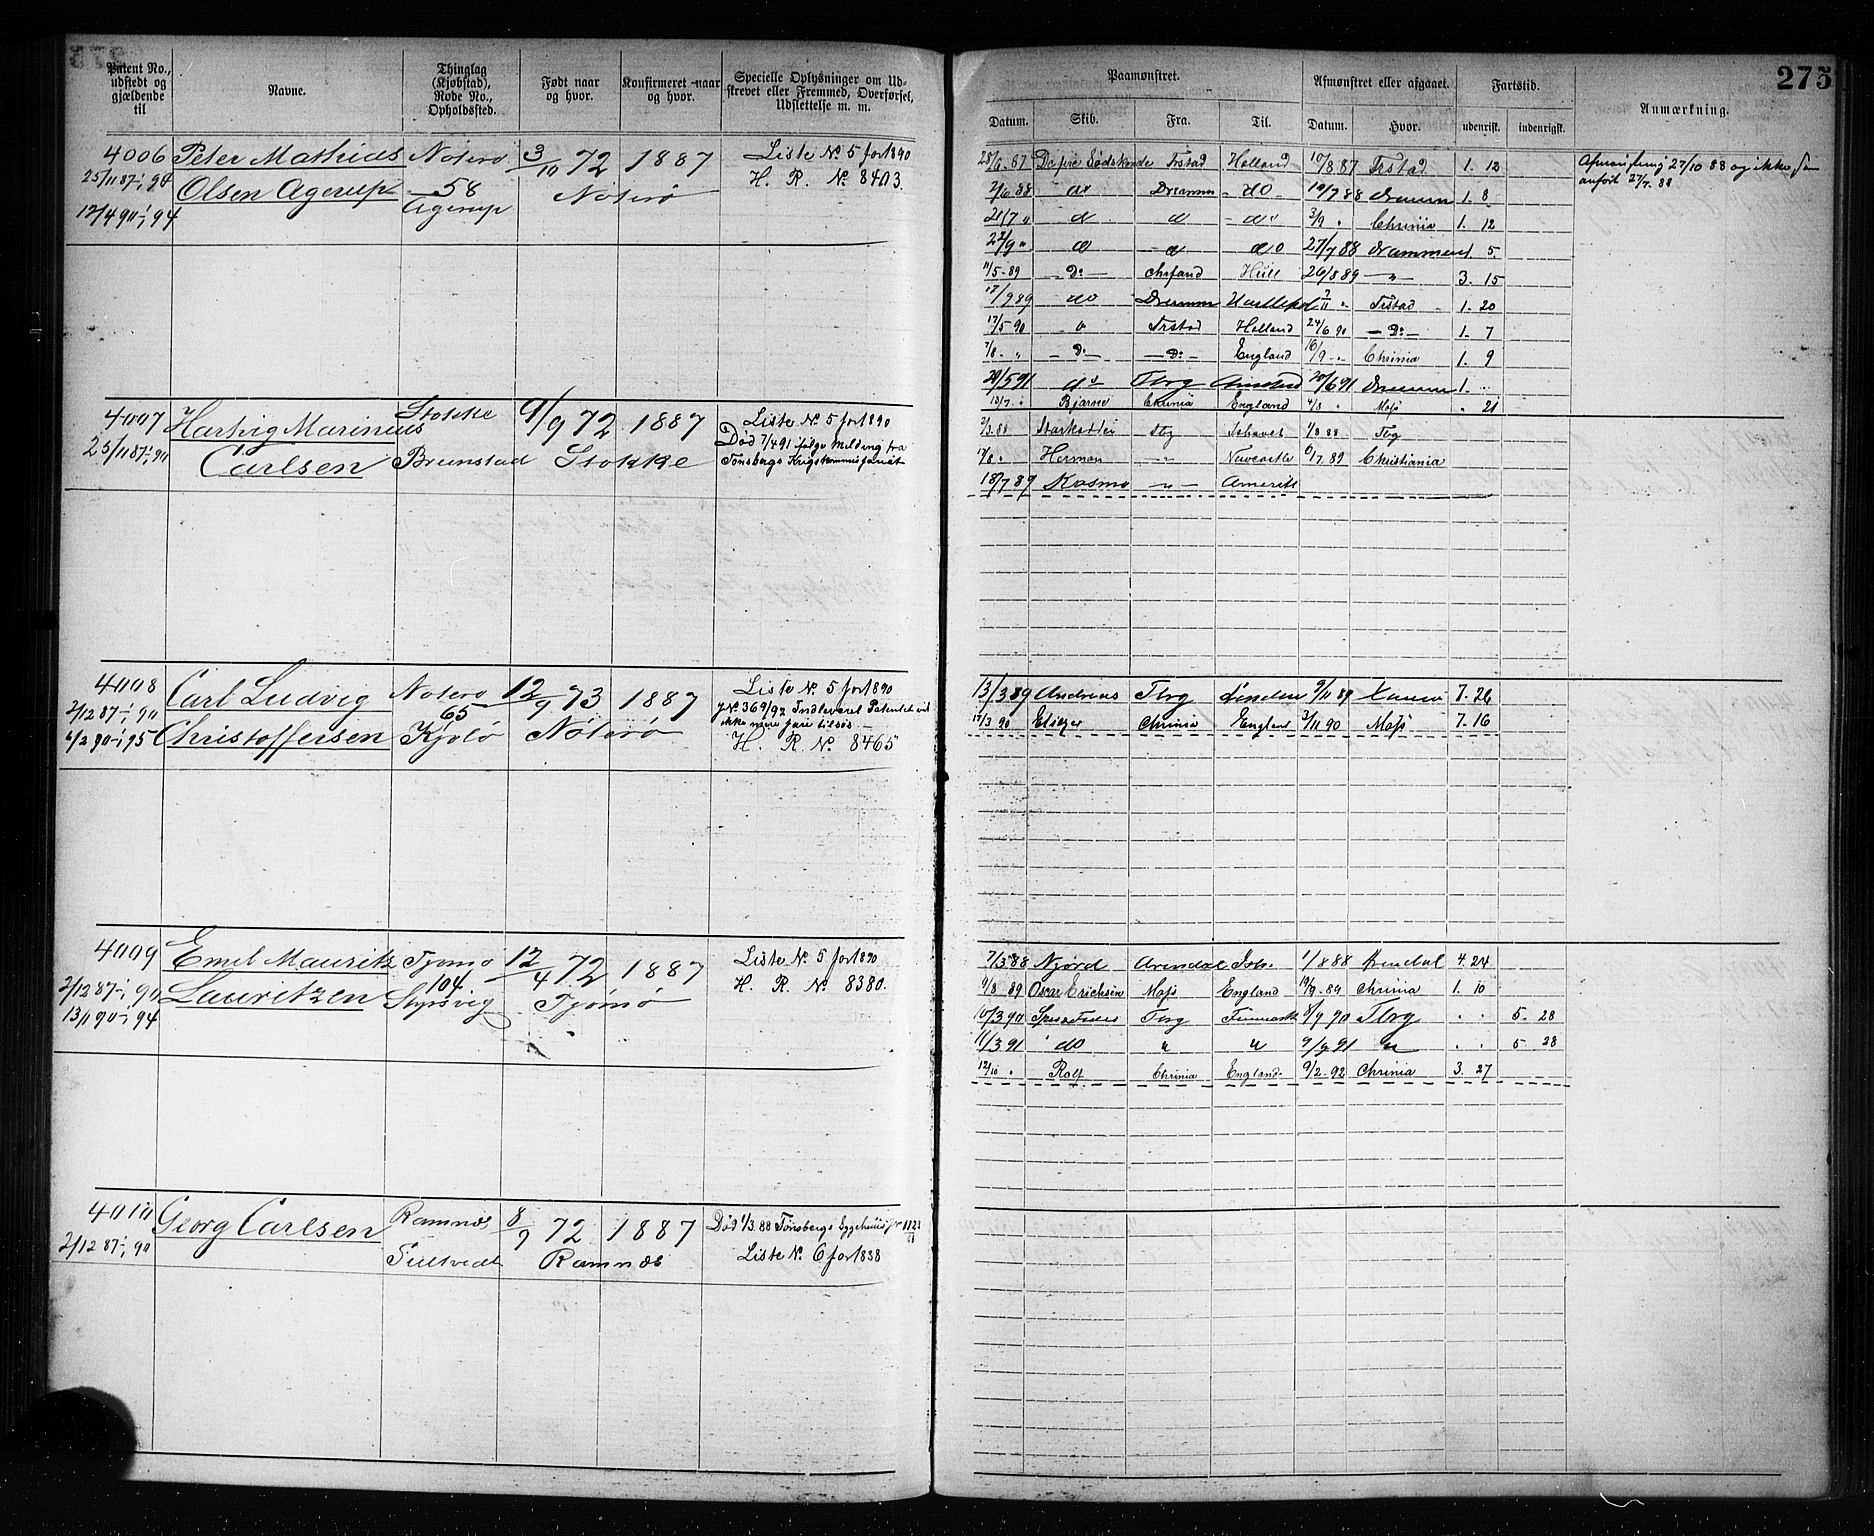 275
Patent No., udstedt og gjældende til
Navne.
Thinglag (Kjøbstad), Rode No., Opholdssted.
Født naar og hvor.
Konfirmeret naar og hvor.
Specielle Oplysninger om Udskrevet eller Fremmed, Overførsel, Udslettelse m. m.
Paamønstret.
Afmønstret eller afgaaet.
Fartstid.
Anmærkning.
Datum. Skib. Fra. Til. Datum. Hvor. udenrigsk. indenrigsk.
4006 Peter Mathias Noterø 3/10 72 1887 Liste No. 5 for 1890
25/11 87-1/1 90 Olsen Agerup 58 Noterø H. R. No. 8403.
12/4 90-1/1 94 Agerup
28/6.87 Frstad Holland 10/8 87 Frstad 1. 12
2/6 88 do Drammn do 19/7 88 Drammn 1. 8
do 3/9 " Chrinia 1. 12
22/9 " do 27/ 88 Drammen 1. 5.
11/5-89 Do Hull 26/8 89 " 3. 15
17/9 89 do Drammn 2/11 " Frstad 1. 20
17/5 90 Frstad Holland 24/6 90 Do 1. 7
7/8 " Do Do England 16/9 " Chrinia 1. 9
29/5 91 do Tbrg 20/6 91 Drammn 1. "
13/7 " Bjarne Chrinia England 4/8 " Moss " 21
27/10 88 og ikke som
anført 27/7. 88
4007 Hartvig Marinius Stokke 9/9 72 1887 Liste No. 5 for 1890
25/11 87-1/1 90 Carlsen Brunstad Stokke Død 7/4 91 ifølge Melding fra
Tønsbergs Krigskommissariat
2/3.88 Tbg Ishavet 1/8 88 Tbg
Herman Newcastle 6/7.89 Christiania
18/7 89 Kosmo " Amerik
4008 Carl Ludvig Noterø 12/9 73 1887 Liste No. 5 for 1890
2/12 87-1/1 90 Christoffersen 65 Noterø J No. 369/92 Indleveret Patentet vil
6/2 90-1/1 95 Kjølø ikke mere fare tilsøs
H. R. No. 8465
13/3 89 Andreas Tbrg London 9/11 89 7. 26
17/3 90 Eliezer Chrinia England 3/11 90 Moss 7. 16
4009 Emil Mauritz Tjømø 12/4 72 1887 Liste No. 5 for 1890
2/12 87-1/1 90 Lauritzen 104 Tjømø H. R. No. 8380.
13/1 90-1/1 94 Styrsvig
7/3 88 Njord Arendal Ish. 1/8 88 Arendal 4. 24
9/8 89 Oscar Erichsen Moss England 19/9.89 Chrinia 1. 10
10/3 90 Spes & Fides Tbrg Finmark 8/9 90 Tbrg " " 5. 28
11/3 91 do " " 9/9 91 " " " 5. 28
12/10 " Rolf Chrinia England 9/2.92 Chrinia 3. 27
4010 Georg Carlsen Ramnæs 8/9 72 1887 Død 1/3 88 Tønsbergs Sygehuus
2/12 87-1/1 90 Ramnæs Liste No. 6 for 1888